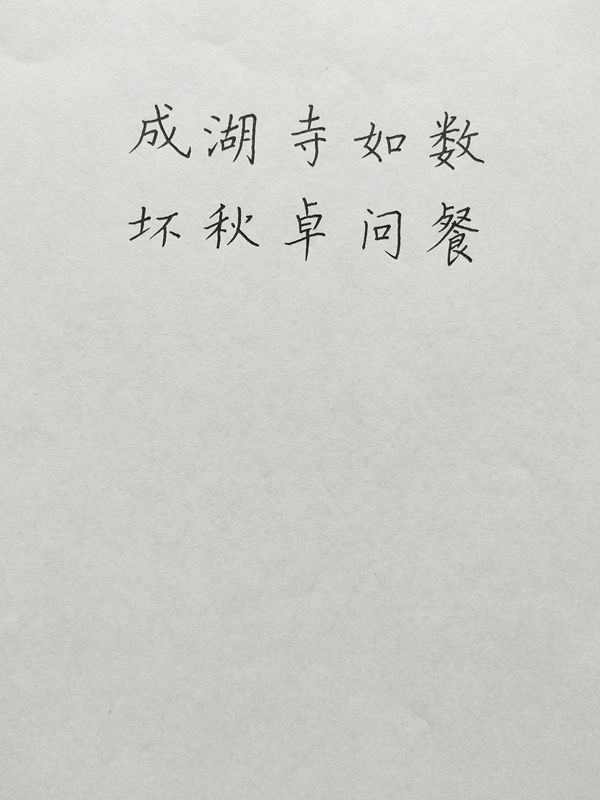 成湖寺如数
坏秋卓问餐